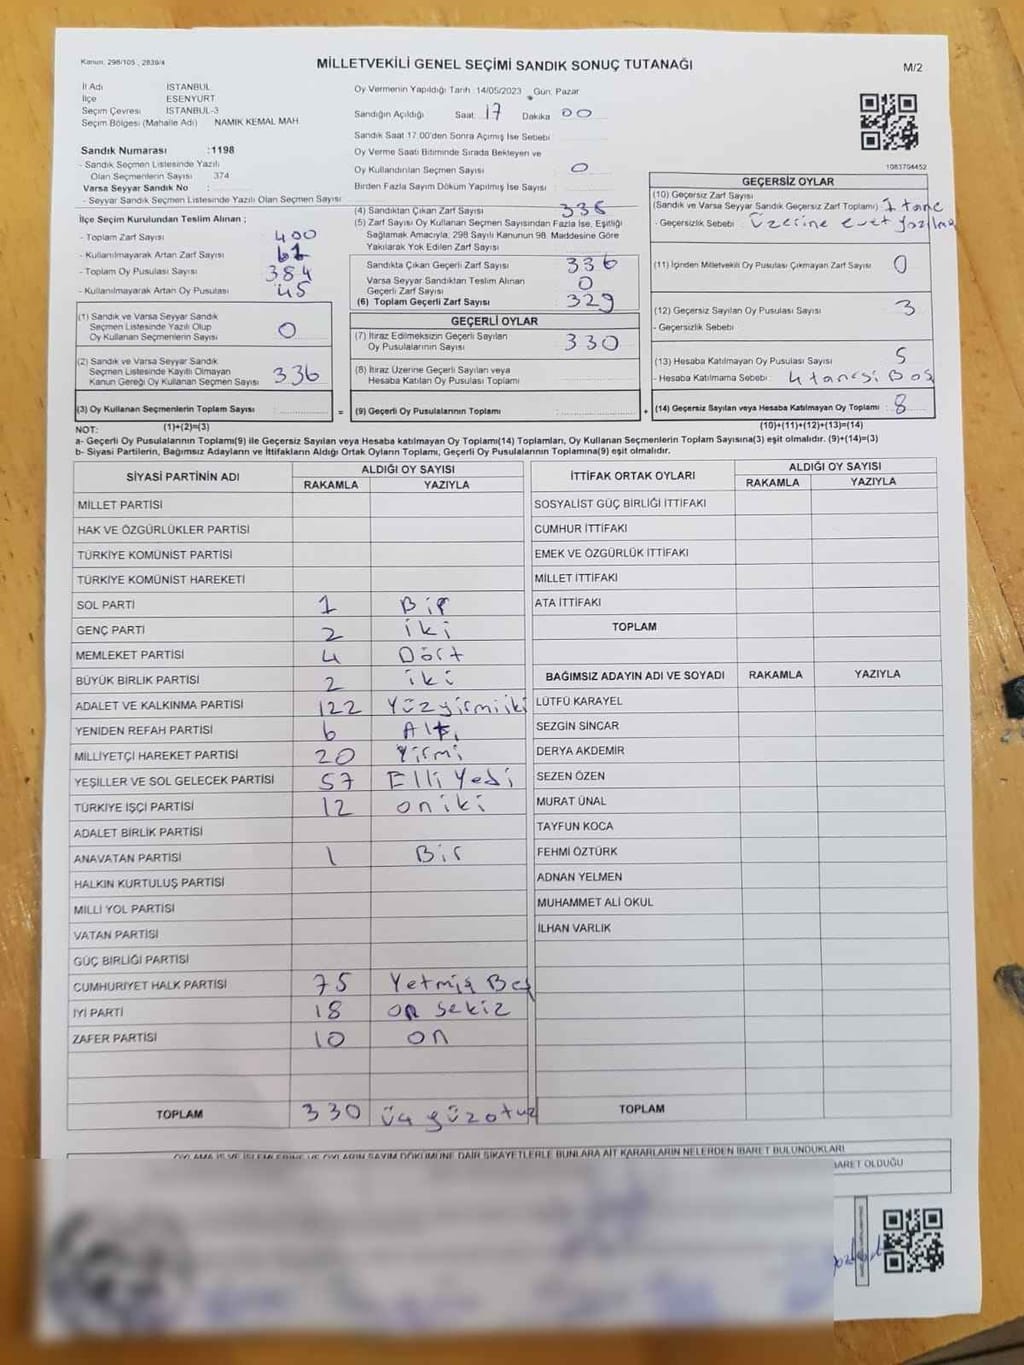 Kanun: 298/105 , 2839/4
MİLLETVEKİLİ GENEL SEÇİMİ SANDIK SONUÇ TUTANAĞI
M/2
İl Adı İSTANBUL
İlçe ESENYURT
Seçim Çevresi İSTANBUL-3
Seçim Bölgesi (Mahalle Adı) NAMIK KEMAL MAH
Sandık Numarası :1198
- Sandık Seçmen Listesinde Yazılı
Olan Seçmenlerin Sayısı 374
Varsa Seyyar Sandık No :
- Seyyar Sandık Seçmen Listesinde Yazılı Olan Seçmen Sayısı
Oy Vermenin Yapıldığı Tarih :14/05/2023 Gün: Pazar
Sandığın Açıldığı Saat 17 Dakika 00
Sandık Saat 17.00'den Sonra Açımış İse Sebebi
Oy Verme Saati Bitiminde Sırada Bekleyen ve
Oy Kullandırılan Seçmen Sayısı 0
Birden Fazla Sayım Döküm Yapılmış İse Sayısı
1083704452
İlçe Seçim Kurulundan Teslim Alınan ;
- Toplam Zarf Sayısı 400
- Kullanılmayarak Artan Zarf Sayısı
- Toplam Oy Pusulası Sayısı 384
- Kullanılmayarak Artan Oy Pusulası 45
(1) Sandık ve Varsa Seyyar Sandık
Seçmen Listesinde Yazılı Olup
Oy Kullanan Seçmenlerin Sayısı 0
(2) Sandık ve Varsa Seyyar Sandık
Seçmen Listesinde Kayıtlı Olmayan
Kanun Gereği Oy Kullanan Seçmen Sayısı 336
(3) Oy Kullanan Seçmenlerin Toplam Sayısı
(4) Sandıktan Çıkan Zarf Sayısı 336
(5) Zarf Sayısı Oy Kullanan Seçmen Sayısından Fazla İse, Eşitliği
Sağlamak Amacıyla, 298 Sayılı Kanunun 98. Maddesine Göre
Yakılarak Yok Edilen Zarf Sayısı
Sandıkta Çıkan Geçerli Zarf Sayısı 336
Varsa Seyyar Sandıktan Teslim Alınan
Geçerli Zarf Sayısı 0
(6) Toplam Geçerli Zarf Sayısı 329
GEÇERLİ OYLAR
(7) İtiraz Edilmeksizin Geçerli Sayılan
Oy Pusulalarının Sayısı 330
(8) İtiraz Üzerine Geçerli Sayılan veya
Hesaba Katılan Oy Pusulası Toplamı
= (9) Geçerli Oy Pusulalarının Toplamı :
GEÇERSİZ OYLAR
(10) Geçersiz Zarf Sayısı
(Sandık ve Varsa Seyyar Sandık Geçersiz Zarf Toplamı) 1 tane
- Geçersizlik Sebebi : Üzerine evet yazılmış
(11) İçinden Milletvekili Oy Pusulası Çıkmayan Zarf Sayısı 0
(12) Geçersiz Sayılan Oy Pusulası Sayısı 3
- Geçersizlik Sebebi
(13) Hesaba Katılmayan Oy Pusulası Sayısı 5
- Hesaba Katılmama Sebebi : 4 tanesi Boş
+ (14) Geçersiz Sayılan veya Hesaba Katılmayan Oy Toplamı : 8
NOT: (1)+(2)=(3) (10)+(11)+(12)+(13)=(14)
a- Geçerli Oy Pusulalarının Toplamı(9) ile Geçersiz Sayılan veya Hesaba katılmayan Oy Toplamı(14) Toplamları, Oy Kullanan Seçmenlerin Toplam Sayısına(3) eşit olmalıdır. (9)+(14)=(3)
b- Siyasi Partilerin, Bağımsız Adayların ve İttifakların Aldığı Ortak Oyların Toplamı, Geçerli Oy Pusulalarının Toplamına(9) eşit olmalıdır.
SİYASİ PARTİNİN ADI ALDIĞI OY SAYISI
RAKAMLA YAZIYLA
MİLLET PARTİSİ
HAK VE ÖZGÜRLÜKLER PARTİSİ
TÜRKİYE KOMÜNİST PARTİSİ
TÜRKİYE KOMÜNİST HAREKETİ
SOL PARTİ 1 Bir
GENÇ PARTİ 2 iki
MEMLEKET PARTİSİ 4 Dört
BÜYÜK BİRLİK PARTİSİ 2 iki
ADALET VE KALKINMA PARTİSİ 122 Yüzyirmiiki
YENİDEN REFAH PARTİSİ 6 Altı
MİLLİYETÇİ HAREKET PARTİSİ 20 Yirmi
YEŞİLLER VE SOL GELECEK PARTİSİ 57 Elli Yedi
TÜRKİYE İŞÇİ PARTİSİ 12 on iki
ADALET BİRLİK PARTİSİ
ANAVATAN PARTİSİ 1 Bir
HALKIN KURTULUŞ PARTİSİ
MİLLİ YOL PARTİSİ
VATAN PARTİSİ
GÜÇ BİRLİĞİ PARTİSİ
CUMHURİYET HALK PARTİSİ 75 Yetmiş Beş
İYİ PARTİ 18 on sekiz
ZAFER PARTİSİ 10 on
TOPLAM 330 üç yüz otuz
İTTİFAK ORTAK OYLARI ALDIĞI OY SAYISI
RAKAMLA YAZIYLA
SOSYALİST GÜÇ BİRLİĞİ İTTİFAKI
CUMHUR İTTİFAKI
EMEK VE ÖZGÜRLÜK İTTİFAKI
MİLLET İTTİFAKI
ATA İTTİFAKI
TOPLAM
BAĞIMSIZ ADAYIN ADI VE SOYADI RAKAMLA YAZIYLA
LÜTFÜ KARAYEL
SEZGİN SİNCAR
DERYA AKDEMİR
SEZEN ÖZEN
MURAT ÜNAL
TAYFUN KOCA
FEHMİ ÖZTÜRK
ADNAN YELMEN
MUHAMMET ALİ OKUL
İLHAN VARLIK
TOPLAM
OYLAMA İŞ VE İŞLEMLERİNE VE OYLARIN SAYIM DÖKÜMÜNE DAİR ŞİKAYETLERLE BUNLARA AİT KARARLARIN NELERDEN İBARET BULUNDUKLARI
BARET OLDUĞU